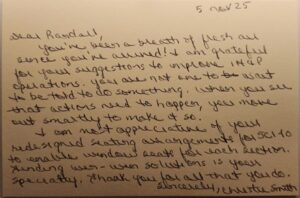 5 Nov 25
Dear Randall,
You've been a breath of fresh air
since you've arrived! I am grateful
for your suggestions to improve
operations. You are not one to wait
to be told to do something. When you see
that actions need to happen, you move
out smartly to make it so.
I am most appreciative of your
redesigned seating arrangements for
to enable window seats for each section.
Finding win-win solutions is your
specialty. Thank you for all that you do.
Sincerely, Christie Smith